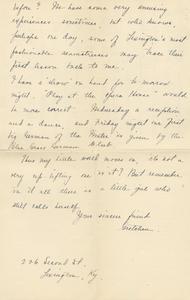 before? We have some very amusing
experiences sometimes but who knows,
perhaps one day, some of Lexington's most
fashionable may trace their
first lesson back to me.
I have a "show" on hand for to morrow
night. "Play at the Opera House" would
be more correct Wednesday a reception
and a dance, and Friday night our first
big German of the Winter is given by the
Blue Grass German Club.
Thus my little world moves on, its not a
very uplifting one is it? But remember
in it all there is a little girl who
still calls herself,
Your sincere friend
Gretchen.
226 Second St.
Lexington, Ky.